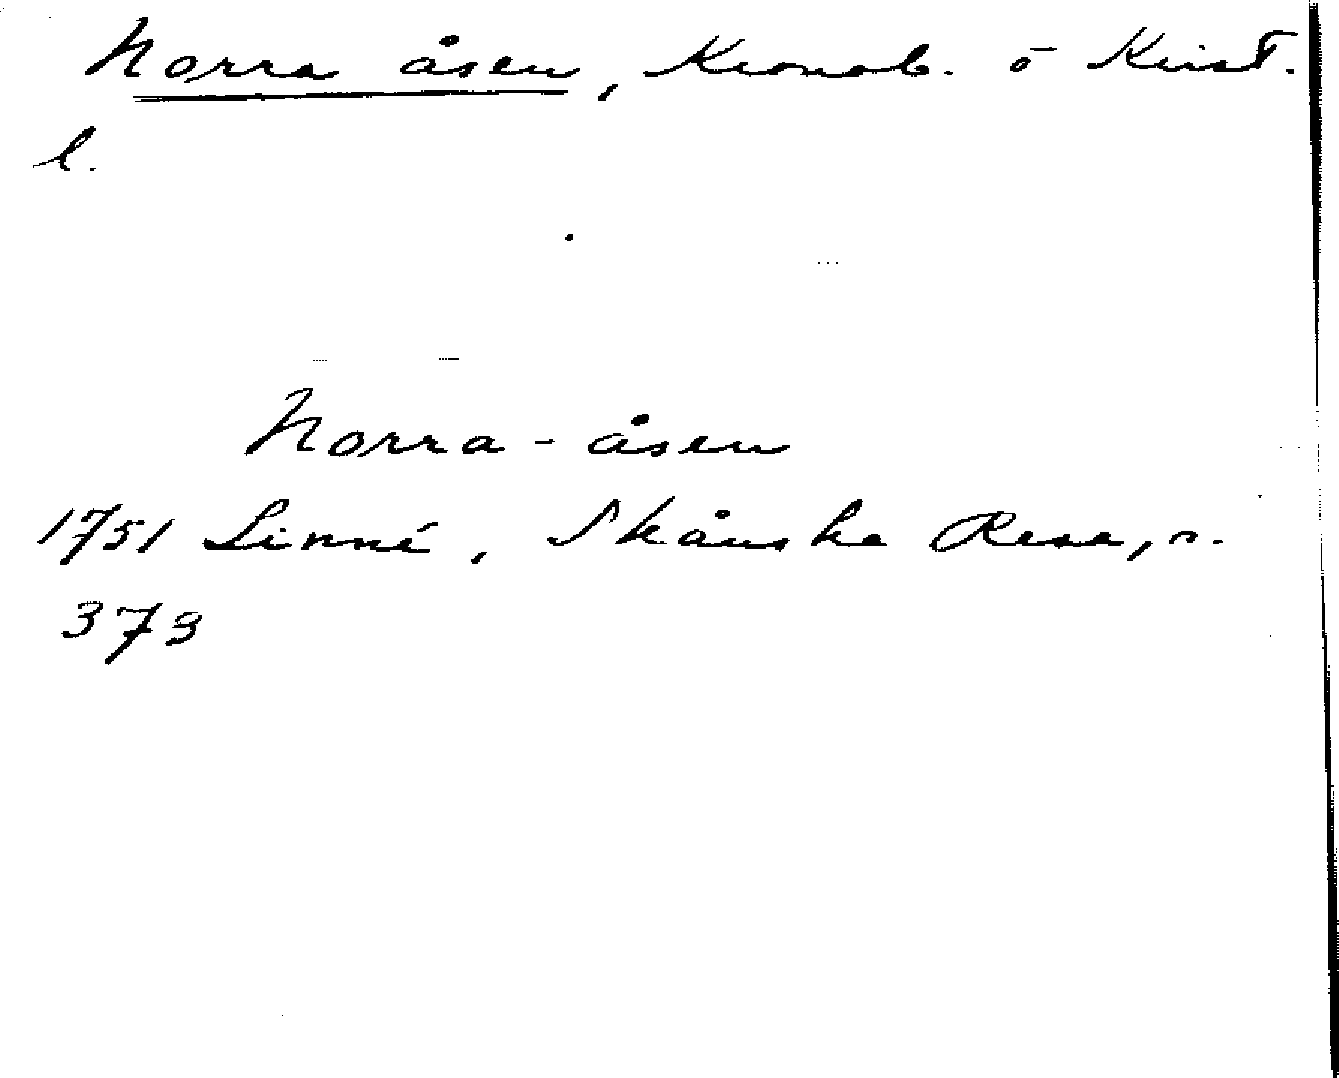 Norra åsen, Kronob. o Krist.
l.
Norra-åsen
1751 Linné, Skånska Resa, s.
373